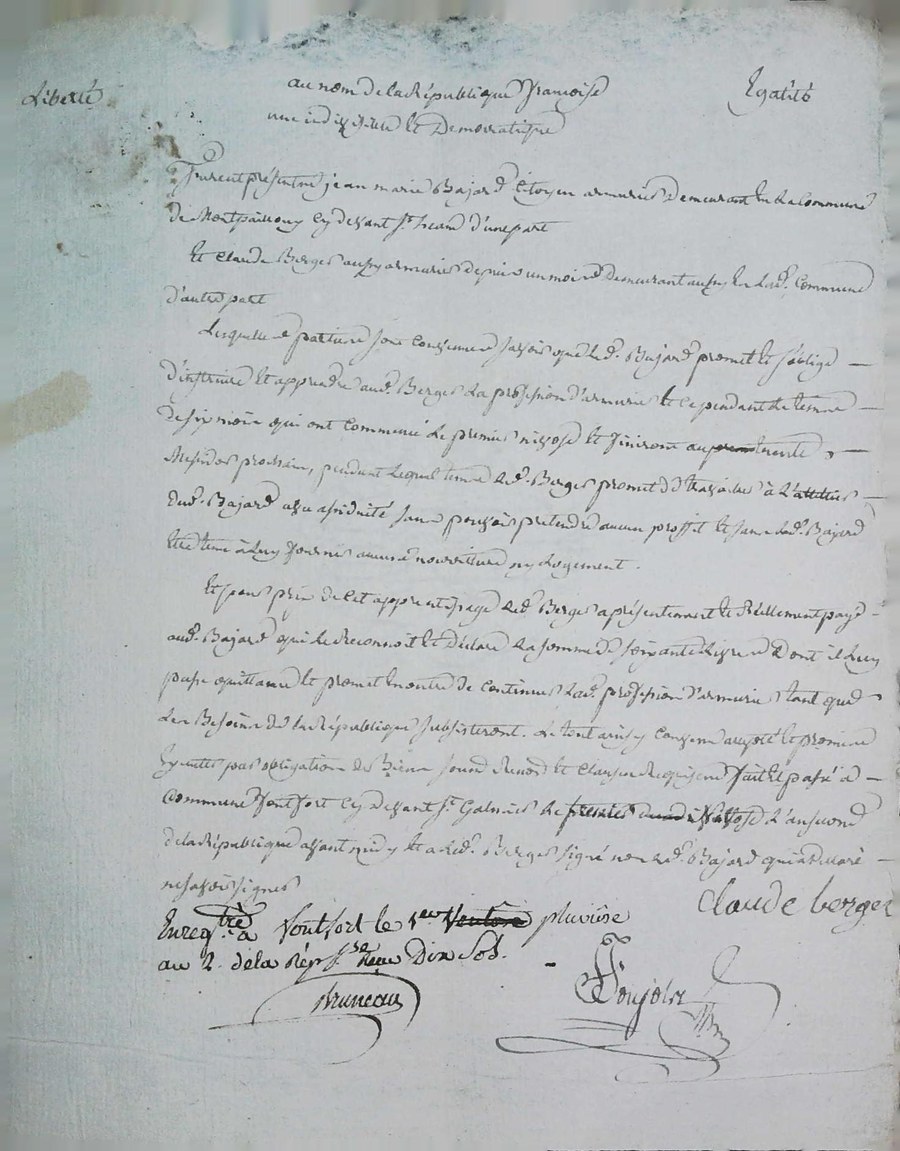 Liberté au nom de la République françoise Egalité
une indivisible et Democratique
Furent présents jean marie Bajard Citoyen armurier demeurant en la Commune
de Montpailloux cy devant St heand d'une part
Et Claude Berger aussy armurier depuis un mois demeurant aussy en lad. Commune
d'autre part
Lesquelles parties sont convenues savoir que led. Bajard promet et s'oblige
d'instruire et apprendre aud. Berger la profession d'armurier et ce pendant le terme
de six mois qui ont commencé le premier nivose et finiront au trente
Messidor prochain, pendant lequel terme led. Berger promet de travailler à l'attelier
dud. Bajard avec assiduité sans pouvoir pretendre aucun proffit et sans led. Bajard
être tenu à luy fournir aucune nourriture ny logement.
Et pour prix de cet apprentissage led. Berger a présentement et Réellement payé
aud. Bajard qui le reconnoit et déclare la somme de soixante livres Dont il luy
passe quittance et promet en outre de continuer lad. profession d'armurier tant que
les Besoins de la République subsisteront. Le tout ainsy convenu accepté et promis
exécuter par obligation de Biens soumis Renond et clauses Requises fait et passé à
Commune fontfort cy devant St Galmier le premier nivose l'an second
de la République avant midy et a led. Berger signé non led. Bajard qui a declaré
ne savoir signer
claude berger
Enregtré à fontfort le 1er ventôse pluviôse
an 2. de la Rép. fse Reçu Dix Sols.
Bruneau
Ponjolu